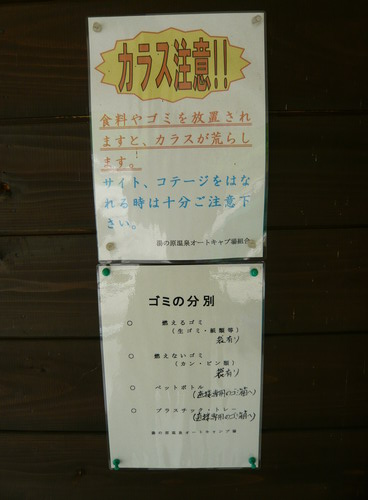 カラス注意!!
食料やゴミを放置され
ますと、カラスが荒らし
ます。!
サイト、コテージをはな
れる時は十分ご注意下
さい。
湯の原温泉オートキャプ場組合
ゴミの分別
○ 燃えるゴミ
(生ゴミ・紙類等)
袋有り
○ 燃えないゴミ
(カン・ビン類)
袋有り
○ ペットボトル
(直接専用のゴミ箱へ)
○ プラスチック・トレー
(直接専用のゴミ箱へ)
湯の原温泉オートキャンプ場